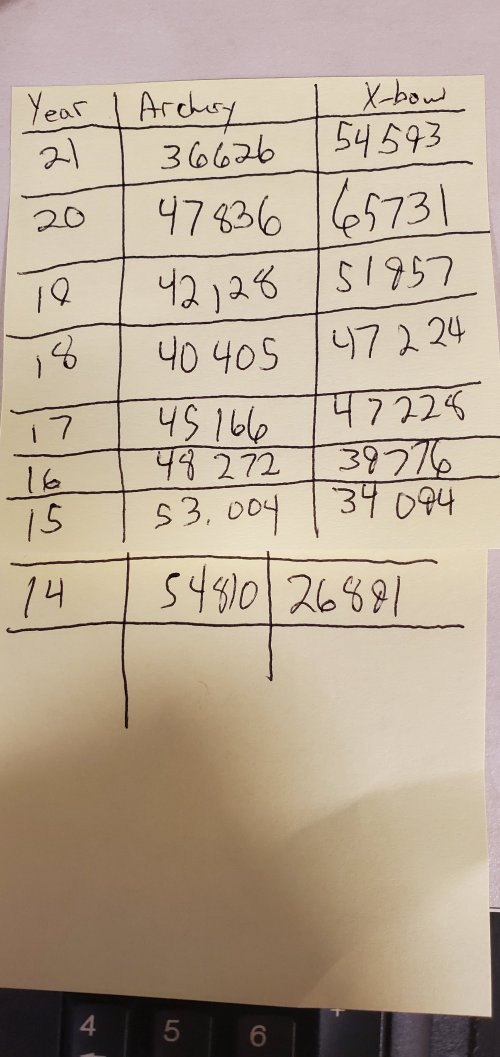 Year Archery X-bow
21 36626 54593
20 47836 65731
19 42,128 51957
18 40405 47224
17 45166 47228
16 48272 39776
15 53,004 34094
14 54810 26891
4 5 6